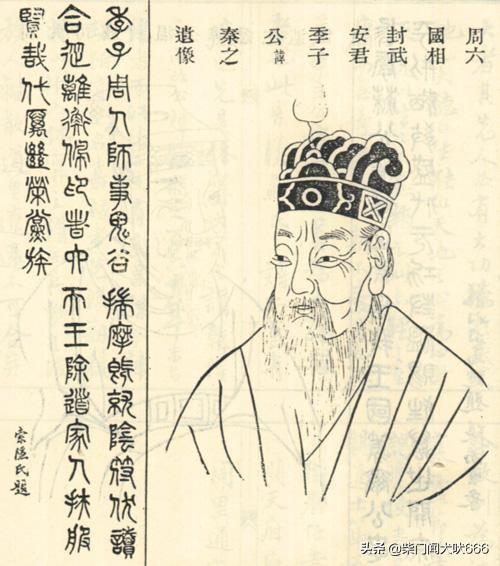 周六
國相
封武
安君
季子
公諱
秦之
遺像
季子周人師事鬼谷揣摩既就陰符伏讀
合從離衡佩印者六天王除道家人扶服
賢哉代厲繼榮黨族
索隱氏題
头条 @柴门闻犬吠666